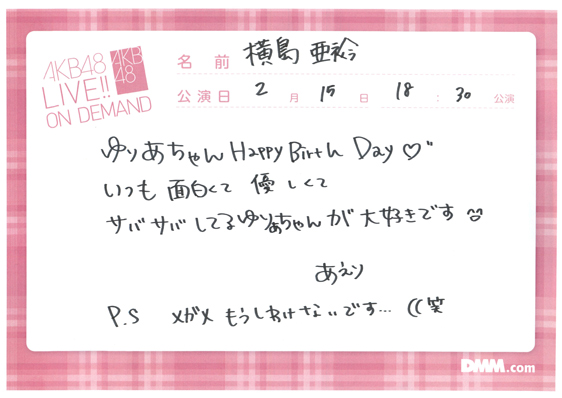 AKB48
LIVE!!
ON DEMAND
AKB
48
名前 横島亜衿
公演日 2月 15日 18:30公演
ゆりあちゃん Happy Birth Day♡"
いつも 面白くて 優しくて
サバサバしてるゆりあちゃんが 大好きです
あえり
P.S メガネ もうしわけないです… ((笑
DMM.com